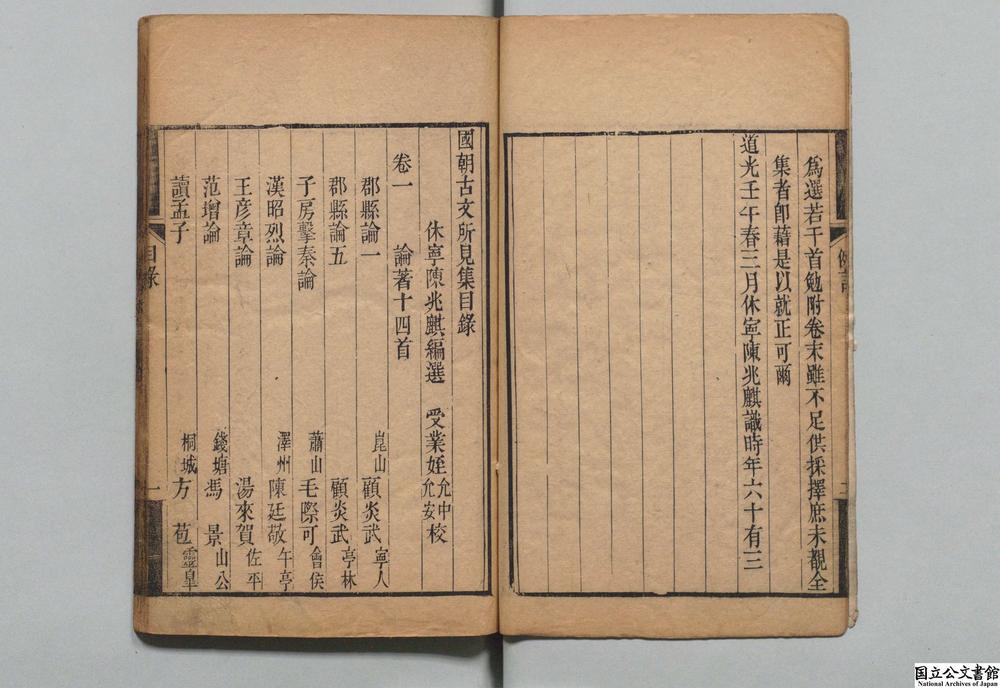 為選若干首勉附卷末雖不足供採擇庶未覩全
集者卽藉是以就正可爾
道光壬午春三月休寧陳兆麒識時年六十有三
例言
二
國朝古文所見集目錄
休寧陳兆麒編選 受業姪允中允安校
卷一 論著十四首
郡縣論一 崑山顧炎武寧人
郡縣論五 顧炎武亭林
子房擊秦論 蕭山毛際可會侯
漢昭烈論 澤州陳廷敬午亭
王彥章論 湯來賀佐平
范增論 錢塘馮景山公
讀孟子 桐城方苞靈皐
目錄
一
国立公文書館
National Archives of Japan